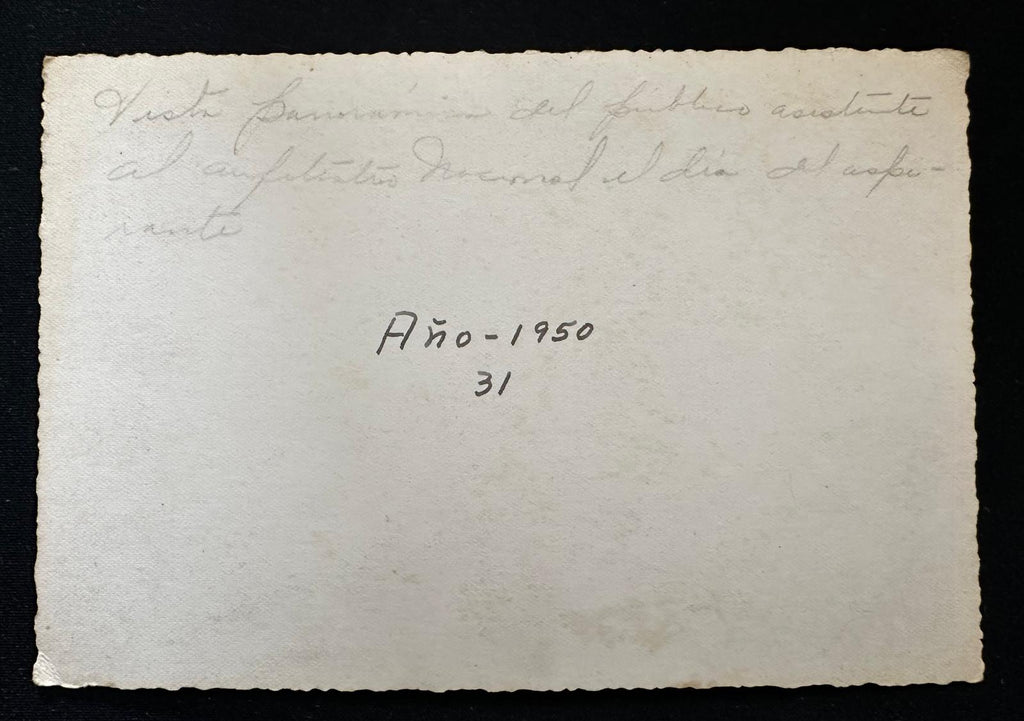 Vista panorámica del público asistente
al anfiteatro Nacional el día del aspi-
rante
Año-1950
31